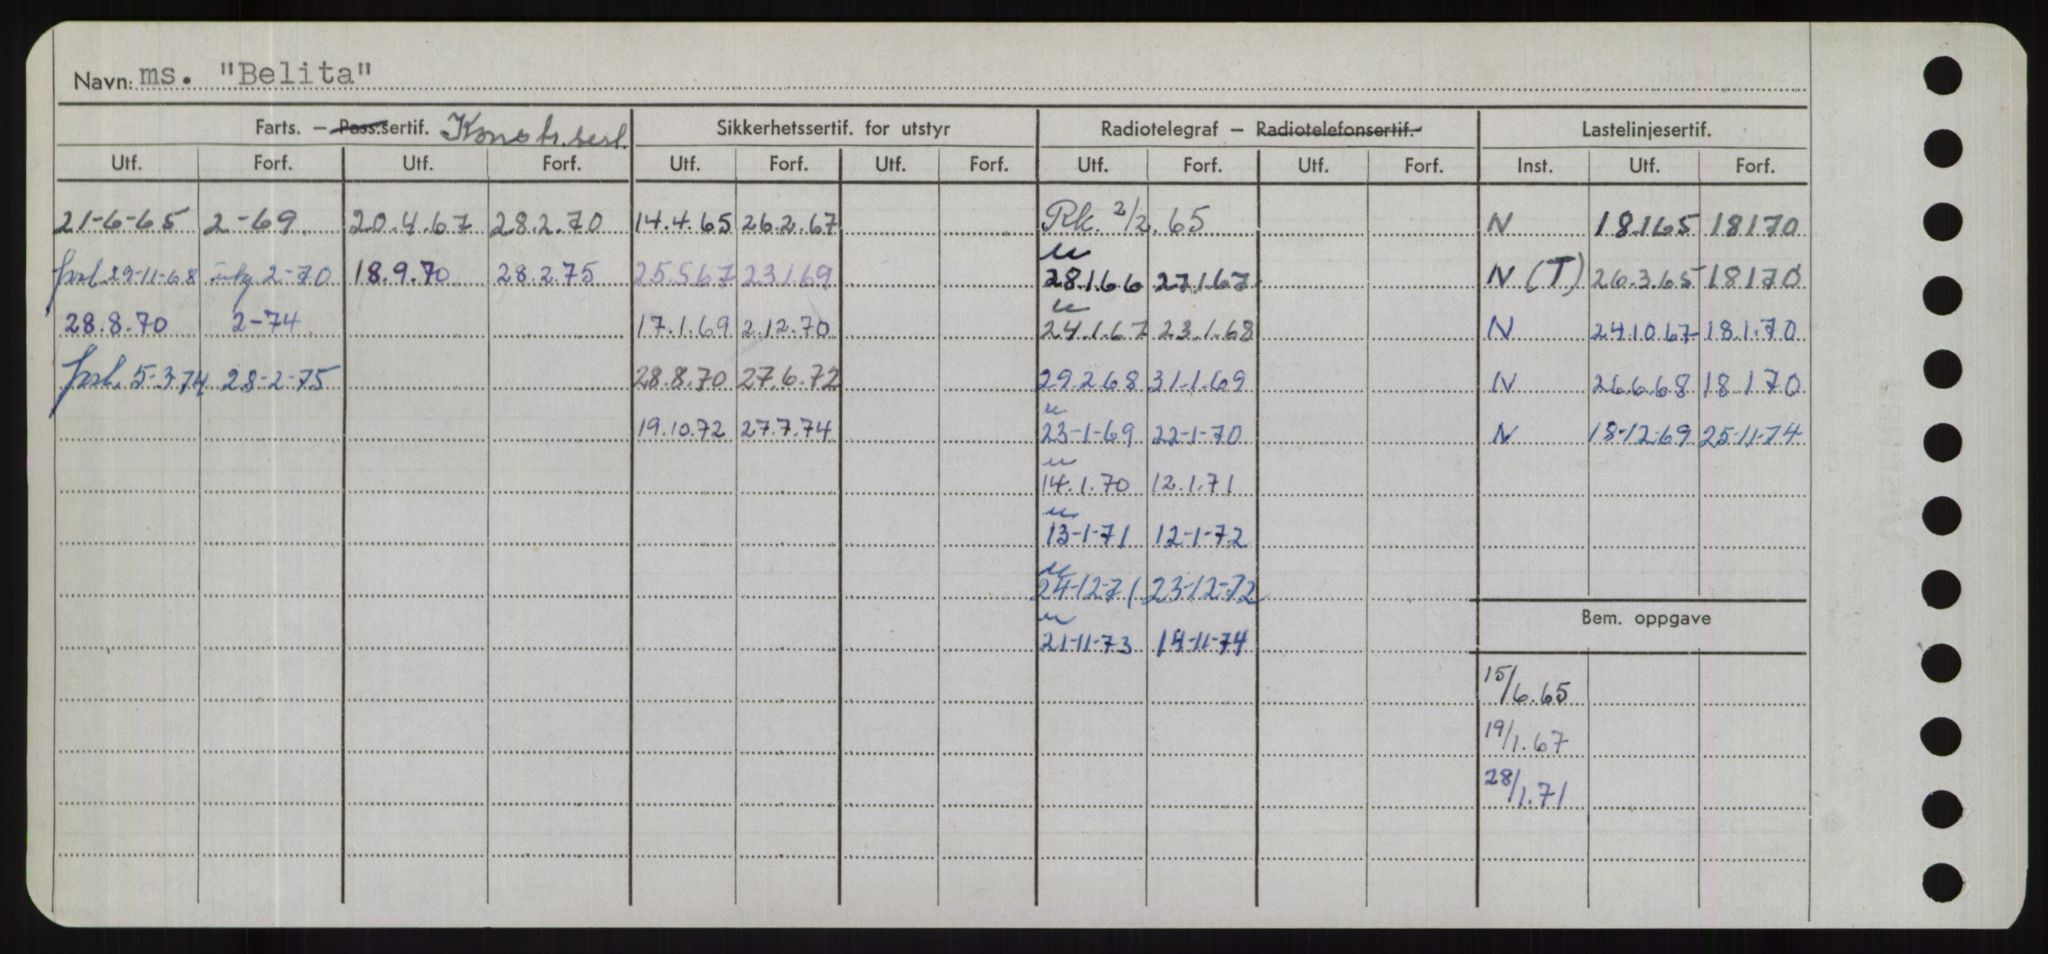 Navn: ms. "Belita"
Farts. – Pass.sertif. Konstr.sert. Sikkerhetssertif. for utstyr Radiotelegraf – Radiotelefonsertif. Lastelinjesertif.
Utf. Forf. Utf. Forf. Utf. Forf. Utf. Forf. Utf. Forf. Utf. Forf. Inst. Utf. Forf.
21-6-65 2-69 20.4.67 28.2.70 14.4.65 26.2.67 Rk. 2/2.65 N 18.1.65 18 1 70
forl. 29-11-68 2-70 18.9.70 28.2.75 25.5.67 23.1.69 " 28.1.66 27.1.67 N (T) 26.3.65 18 1 70
28.8.70 2-74 17.1.69 2.12.70 " 24.1.67 23.1.68 N 24.10.67 18.1.70
forl. 5-3-74 28-2-75 28.8.70 27.6.72 29.2.68 31.1.69 N 26.6.68 18 1 70
19.10.72 27.7.74 " 23-1-69 22-1-70 N 18-12-69 25-11-74
" 14.1.70 12.1.71
" 13-1-71 12-1-72
" 24-12-71 23-12-72
Bem. oppgave
" 21-11-73 14-11-74
15/6.65
19/1.67
28/1.71